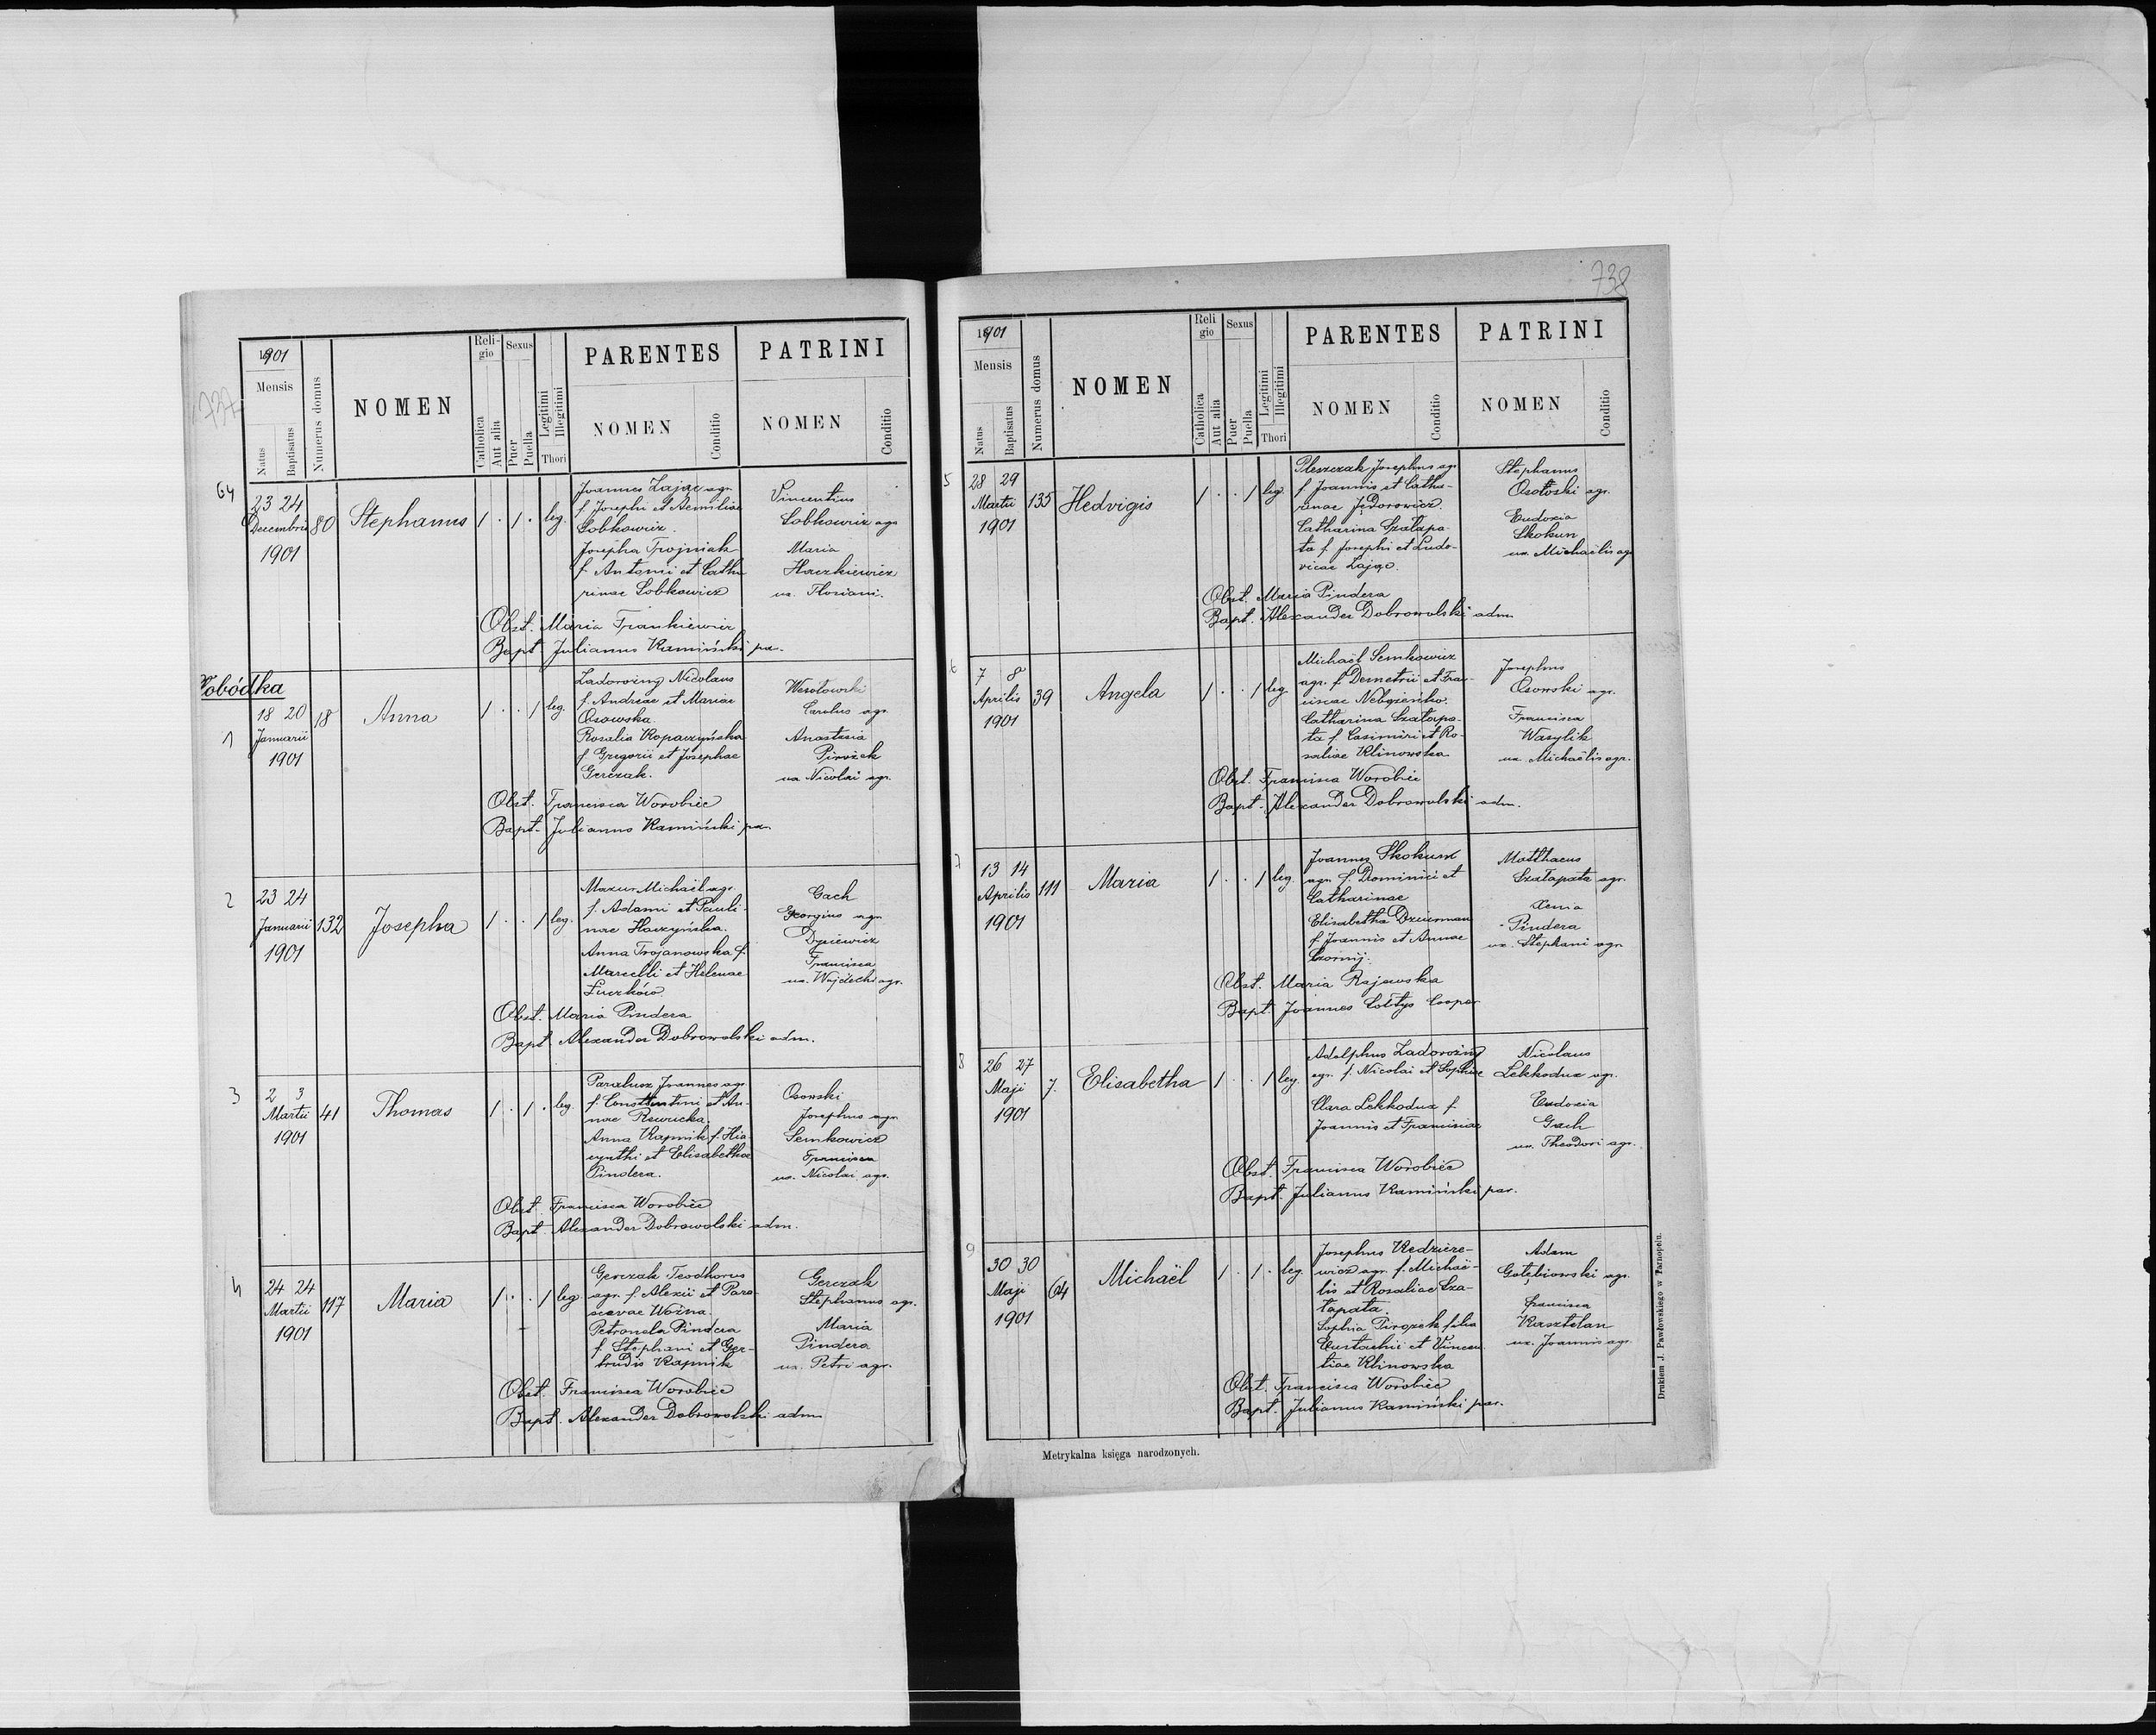 737
1901
Mensis
Natus
Baptisatus
Numerus domus
NOMEN
Reli-
gio
Catholica
Aut alia
Sexus
Puer
Puella
Legitimi
Illegitimi
Thori
PARENTES
NOMEN
Conditio
PATRINI
NOMEN
Conditio
64
23 24
Decembris
1901
80
Stephanus
1 . 1 . leg.
Joannes Zając agr.
f. Josephi et Aemiliae
Sobkowicz.
Josepha Trojniak
f. Antonii et Catha
rinae Sobkowicz
Vincentius
Sobkowicz agr
Maria
Haczkiewicz
ux. Floriani.
Obst. Maria Frankiewicz
Bapt. Julianus Kamiński par.
Wobódka
1
18 20
Januarii
1901
18
Anna
1 . . 1 leg.
Zadorożny Nicolaus
f. Andreae et Mariae
Osowska
Rosalia Kopaczyńska
f. Gregorii et Josephae
Gerczak.
Wesołowski
Carolus agr.
Anastasia
Pirożek
ux. Nicolai agr.
Obst. Francisca Worobiec
Bapt. Julianus Kamiński par.
2
23 24
Januarii
1901
132
Josepha
1 . . 1 leg.
Mazur Michaël agr.
f. Adami et Pauli-
nae Haczyńska.
Anna Trojanowska f.
Marcelli et Helenae
Łuczków.
Gach
Georgius agr.
Dyciewicz
Francisca
ux. Wojciechi agr.
Obst. Maria Pindera
Bapt. Alexander Dobrowolski adm.
3
2 3
Martii
1901
41
Thomas
1 . 1 . leg.
Paralusz Joannes agr
f. Constantini et An-
nae Rewucka.
Anna Kapnik f. Hia
cynthi et Elisabethae
Pindera.
Osowski
Josephus agr.
Semkowicz
Francisca
ux. Nicolai agr.
Obst. Francisca Worobiec
Bapt. Alexander Dobrowolski adm.
4
24 24
Martii
1901
117
Maria
1 . . 1 leg.
Gerczak Teodhorus
agr. f. Alexii et Para
scevae Woźna.
Petronela Pindera
f. Stephani et Ger-
trudis Kapnik
Gerczak
Stephanus agr.
Maria
Pindera
ux. Petri agr.
Obst. Francisca Worobiec
Bapt. Alexander Dobrowolski adm
738
1901
Mensis
Natus
Baptisatus
Numerus domus
NOMEN
Reli
gio
Catholica
Aut alia
Sexus
Puer
Puella
Legitimi
Illegitimi
Thori
PARENTES
NOMEN
Conditio
PATRINI
NOMEN
Conditio
5
28 29
Martii
1901
135
Hedvigis
1 . . 1 leg.
Pleszczak Josephus agr
f. Joannis et Catha-
rinae Jędorowicz.
Catharina Szałapa-
ta f. Josephi et Ludo-
vicae Zając.
Stephanus
Osoťoski agr.
Eudoxia
Skokun
ux. Michaëlis agr
Obst. Maria Pindera
Bapt. Alexander Dobrowolski adm.
6
7 8
Aprilis
1901
39
Angela
1 . . 1 leg.
Michaël Semkowicz
agr. f. Demetrii et Fran-
ciscae
Catharina Szałapa-
ta f. Casimiri et Ro-
saliae Klinowska
Josephus
Osowski agr.
Francisca
Wasylik
ux. Michaëlis agr.
Obst. Francisca Worobiec
Bapt. Alexander Dobrowolski adm.
7
13 14
Aprilis
1901
111
Maria
1 . . 1 leg.
Joannes Skokun
agr. f. Dominici et
Catharinae
Elisabetha Dziurman
f. Joannis et Annae
Czornij.
Matthaeus
Szałapata agr.
Xenia
Pindera
ux. Stephani agr.
Obst. Maria Rajewska
Bapt. Joannes Sołtys Cooper
8
26 27
Maji
1901
7.
Elisabetha
1 . . 1 leg.
Adolphus Zadorożny
agr. f. Nicolai et Sophiae
Clara Lekkodux f.
Joannis et Franciscae
Nicolaus
Lekkodux agr.
Eudoxia
Gach
ux. Theodori agr.
Obst. Francisca Worobiec
Bapt. Julianus Kamiński par.
9
30 30
Maji
1901
64
Michaël
1 . 1 . leg.
Josephus Kedziere-
wicz agr. f. Michaë-
lis et Rosaliae Sza-
łapata.
Sophia Pirożek filia
Eustachii et Vincen
tiae Klinowska
Adam
Gołębiowski agr.
Francisca
Kasztelan
ux. Joannis agr.
Obst. Francisca Worobiec
Bapt. Julianus Kamiński par.
Metrykalna księga narodzonych.
Drukiem J. Pawłowskiego w Tarnopolu.